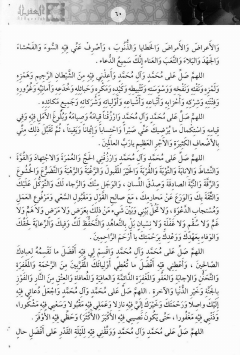 ٦٠
وَالأَعْرَاضَ وَالأَمْرَاضَ وَالْخَطَايَا وَالذُّنُوبَ ، وَاصْرِفْ عَنِّي فِيهِ السُّوءَ وَالْفَحْشَاءَ
وَالْجَهْدَ وَالْبَلَاءَ وَالتَّعَبَ وَالْعَنَاءَ إِنَّكَ سَمِيعُ الدُّعَاءِ .
اللهمّ صَلِّ عَلَى مُحَمَّدٍ وَآلِ مُحَمَّدٍ وَأَعِذْنِي فِيهِ مِنَ الشَّيْطَانِ الرَّجِيمِ وَهَمْزِهِ
وَلَمْزِهِ وَنَفْثِهِ وَنَفْخِهِ وَوَسْوَسَتِهِ وَتَثْبِيطِهِ وَكَيْدِهِ وَمَكْرِهِ وَحَبَائِلِهِ وَخُدَعِهِ وَأَمَانِيِّهِ وَغُرُورِهِ
وَفِتْنَتِهِ وَشَرَكِهِ وَأَحْزَابِهِ وَأَتْبَاعِهِ وَأَشْيَاعِهِ وَأَوْلِيَائِهِ وَشُرَكَائِهِ وَجَمِيعِ مَكَائِدِهِ .
اللهمّ صَلِّ عَلَى مُحَمَّدٍ وَآلِ مُحَمَّدٍ وَارْزُقْنَا قِيَامَهُ وَصِيَامَهُ وَبُلُوغَ الأَمَلِ فِيهِ وَفِي
قِيَامِهِ وَاسْتِكْمَالَ مَا يُرْضِيكَ عَنِّي صَبْراً وَاحْتِسَاباً وَإِيمَاناً وَيَقِيناً ، ثُمَّ تَقَبَّلْ ذَلِكَ مِنِّي
بِالأَضْعَافِ الْكَثِيرَةِ وَالأَجْرِ الْعَظِيمِ يَا رَبَّ الْعَالَمِينَ .
اللهمّ صَلِّ عَلَى مُحَمَّدٍ وَآلِ مُحَمَّدٍ وَارْزُقْنِي الْحَجَّ وَالْعُمْرَةَ وَالاجْتِهَادَ وَالْقُوَّةَ
وَالنَّشَاطَ وَالإِنَابَةَ وَالتَّوْبَةَ وَالْقُرْبَةَ وَالْخَيْرَ الْمَقْبُولَ وَالرَّغْبَةَ وَالرَّهْبَةَ وَالتَّضَرُّعَ وَالْخُشُوعَ
وَالرِّقَّةَ وَالنِّيَّةَ الصَّادِقَةَ وَصِدْقَ اللِّسَانِ ، وَالْوَجَلَ مِنْكَ وَالرَّجَاءَ لَكَ وَالتَّوَكُّلَ عَلَيْكَ
وَالثِّقَةَ بِكَ وَالْوَرَعَ عَنْ مَحَارِمِكَ ، مَعَ صَالِحِ الْقَوْلِ وَمَقْبُولِ السَّعْيِ وَمَرْفُوعِ الْعَمَلِ
وَمُسْتَجَابِ الدَّعْوَةِ ، وَلَا تَحُلْ بَيْنِي وَبَيْنَ شَيْءٍ مِنْ ذَلِكَ بِعَرَضٍ وَلَا مَرَضٍ وَلَا هَمٍّ وَلَا
غَمٍّ وَلَا سُقْمٍ وَلَا غَفْلَةٍ وَلَا نِسْيَانٍ بَلْ بِالتَّعَاهُدِ وَالتَّحَفُّظِ لَكَ وَفِيكَ وَالرِّعَايَةِ لِحَقِّكَ
وَالْوَفَاءِ بِعَهْدِكَ وَوَعْدِكَ بِرَحْمَتِكَ يَا أَرْحَمَ الرَّاحِمِينَ .
اللهمّ صَلِّ عَلَى مُحَمَّدٍ وَآلِ مُحَمَّدٍ وَاقْسِمْ لِي فِيهِ أَفْضَلَ مَا تَقْسِمُهُ لِعِبَادِكَ
الصَّالِحِينَ ، وَأَعْطِنِي فِيهِ أَفْضَلَ مَا تُعْطِي أَوْلِيَاءَكَ الْمُقَرَّبِينَ مِنَ الرَّحْمَةِ وَالْمَغْفِرَةِ
وَالتَّحَنُّنِ وَالإِجَابَةِ وَالْعَفْوِ وَالْمَغْفِرَةِ الدَّائِمَةِ وَالْعَافِيَةِ وَالْمُعَافَاةِ وَالْعِتْقِ مِنَ النَّارِ وَالْفَوْزِ
بِالْجَنَّةِ وَخَيْرِ الدُّنْيَا وَالآخِرَةِ . اللهمّ صَلِّ عَلَى مُحَمَّدٍ وَآلِ مُحَمَّدٍ وَاجْعَلْ دُعَائِي فِيهِ
إِلَيْكَ وَاصِلاً وَرَحْمَتَكَ وَخَيْرَكَ إِلَيَّ فِيهِ نَازِلاً وَعَمَلِي فِيهِ مَقْبُولاً وَسَعْيِي فِيهِ مَشْكُوراً ،
وَذَنْبِي فِيهِ مَغْفُوراً ، حَتَّى يَكُونَ نَصِيبِي فِيهِ الأَكْثَرَ وَحَظِّي فِيهِ الأَوْفَرَ .
اللهمّ صَلِّ عَلَى مُحَمَّدٍ وَآلِ مُحَمَّدٍ وَوَفِّقْنِي فِيهِ لِلَيْلَةِ الْقَدْرِ عَلَى أَفْضَلِ حَالٍ